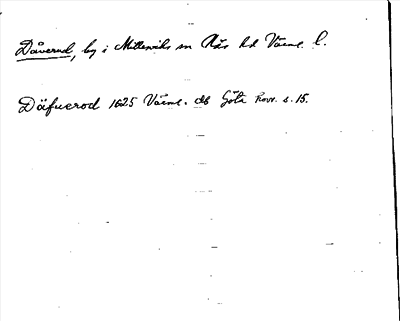 Dåverud, by i Millesviks sn Näs hd Värml. l.
Däfuerod 1625 Värml. db Göta hovr. s. 15.